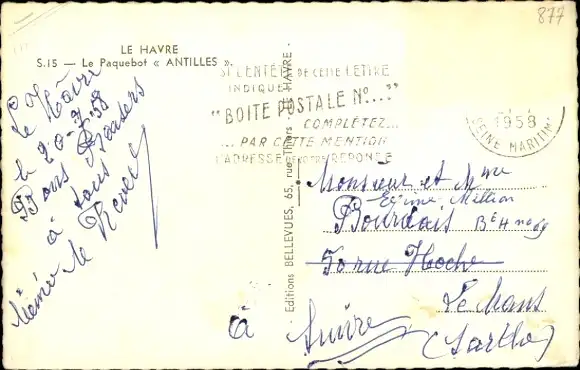 877
LE HAVRE
S.15 — Le Paquebot « ANTILLES ».
Le Hâvre
le 20-7-58
Bons Baisers
à tous
Mémé M
Editions BELLEVUES, 65, rue Thiers - LE HAVRE.
SI L'ENTÊTE DE CETTE LETTRE
INDIQUE
"BOITE POSTALE No...."
COMPLÉTEZ...
... PAR CETTE MENTION
L'ADRESSE DE VOTRE REPONSE
1958
SEINE MARITIME
Monsieur et Mme
Bourdais
50 rue Hoche
Le Mans
(Sarthe)
à Suivre